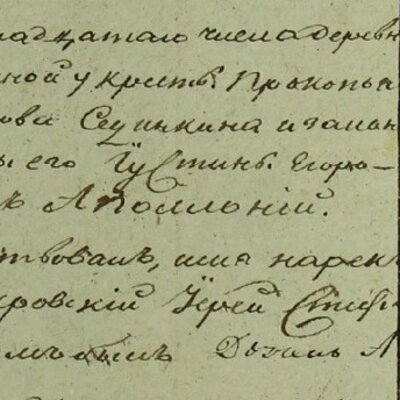 надцатаго числа деревн
ной у крест. Прокопья
ова Сединкина и законн
ы его Іустин. Егоро-
къ Аполлоній.
ствовалъ, имя нарек
кровскій Іерей Стеф
былъ А